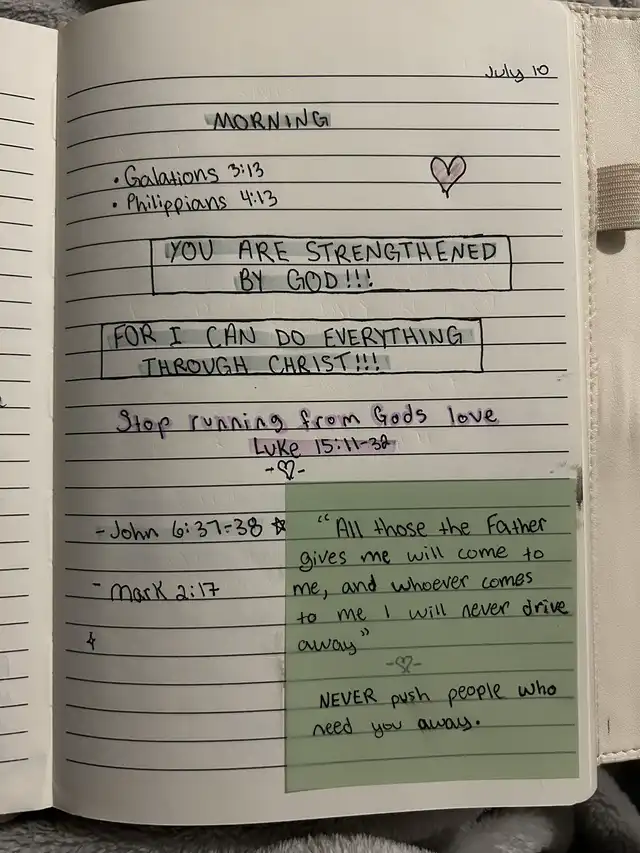 July 10
MORNING
• Galations 3:13
• Philippians 4:13
YOU ARE STRENGTHENED
BY GOD!!!
FOR I CAN DO EVERYTHING
THROUGH CHRIST!!!
Stop running from Gods love
Luke 15:11-32
- John 6:37-38
- Mark 2:17
"All those the Father
gives me will come to
me, and whoever comes
to me I will never drive
away"
NEVER push people who
need you away.